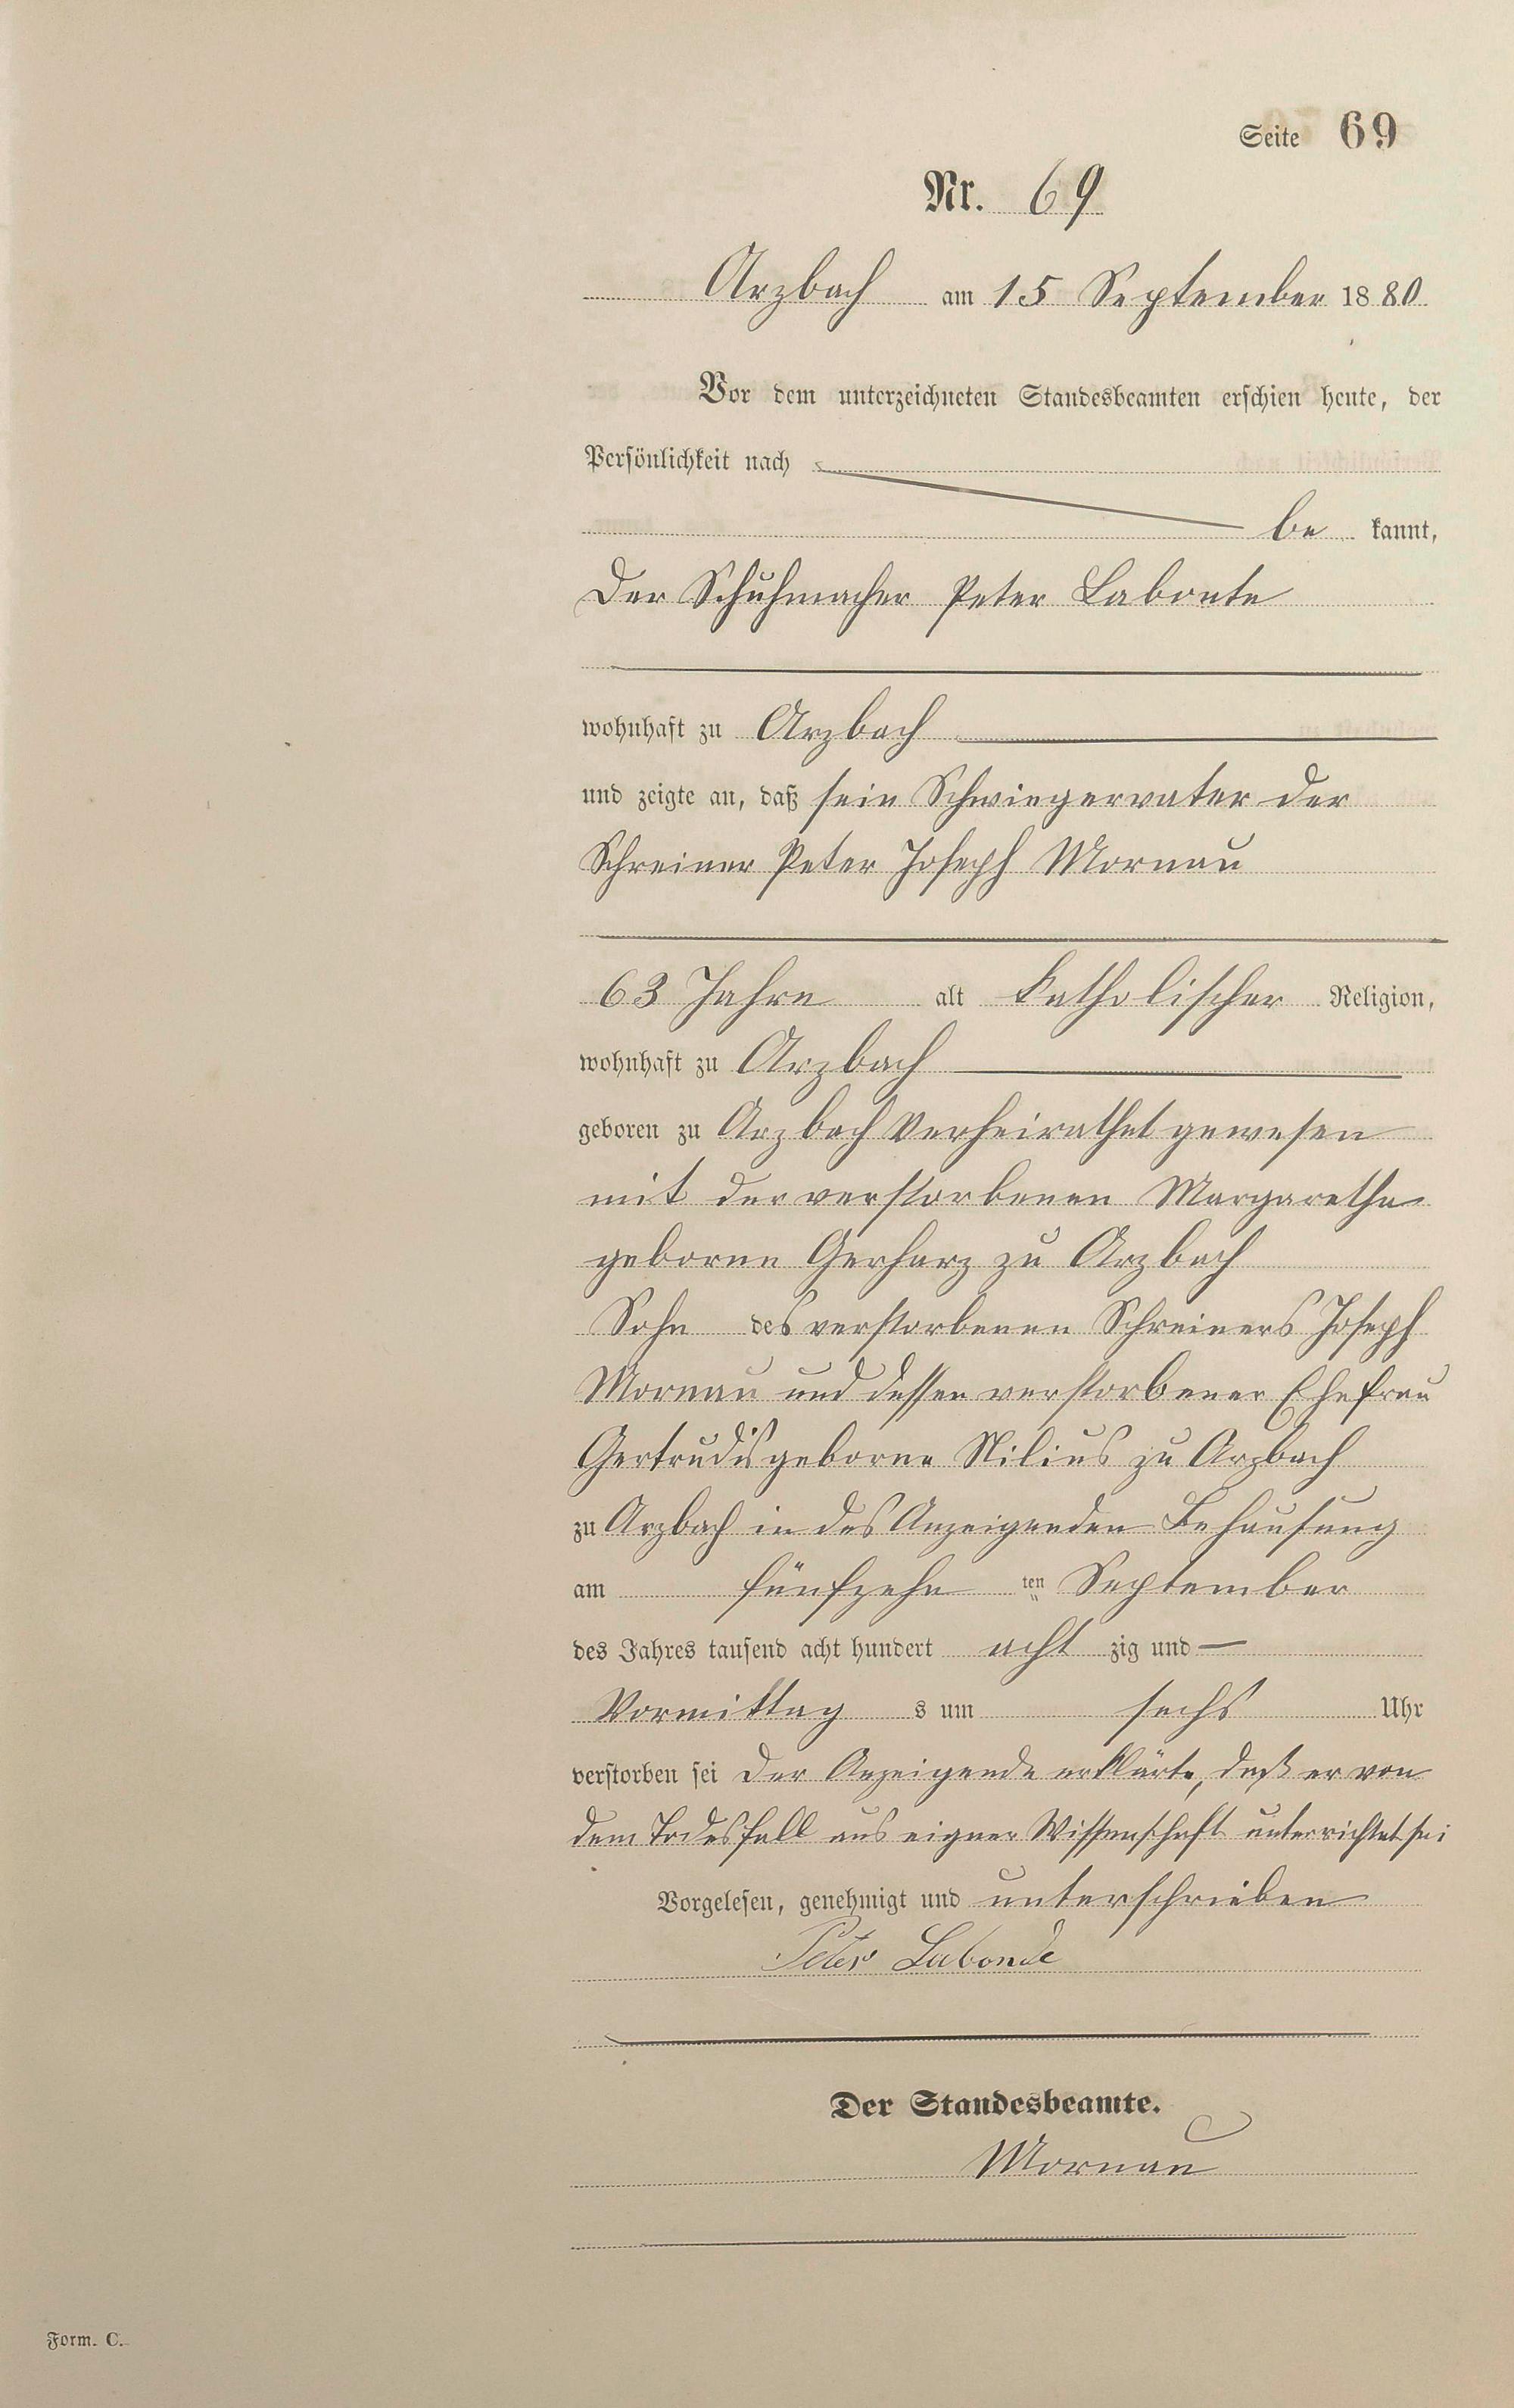 Seite 69
Nr. 69
Arzbach am 15 September 1880
Vor dem unterzeichneten Standesbeamten erschien heute, der
Persönlichkeit nach
be kannt,
Der Schuhmacher Peter Labonte
wohnhaft zu Arzbach
und zeigte an, daß sein Schwiegervater der
Schreiner Peter Joseph Mornau
63 Jahre alt katholischer Religion,
wohnhaft zu Arzbach
geboren zu Arzbach verheirathet gewesen
mit der verstorbenen Margaretha
geborne Gerharz zu Arzbach
Sohn des verstorbenen Schreiners Joseph
Mornau und dessen verstorbener Ehefrau
Gertrudis geborne Nilius zu Arzbach
zu Arzbach in des Anzeigenden Behausung
am fünfzehn ten September
des Jahres tausend acht hundert acht zig und
Vormittag s um sechs Uhr
verstorben sei Der Anzeigende erklärte, daß er von
dem Todesfall aus eigner Wissenschaft unterrichtet sei
Vorgelesen, genehmigt und unterschrieben
Peter Labonde
Der Standesbeamte.
Mornau
Form. C.